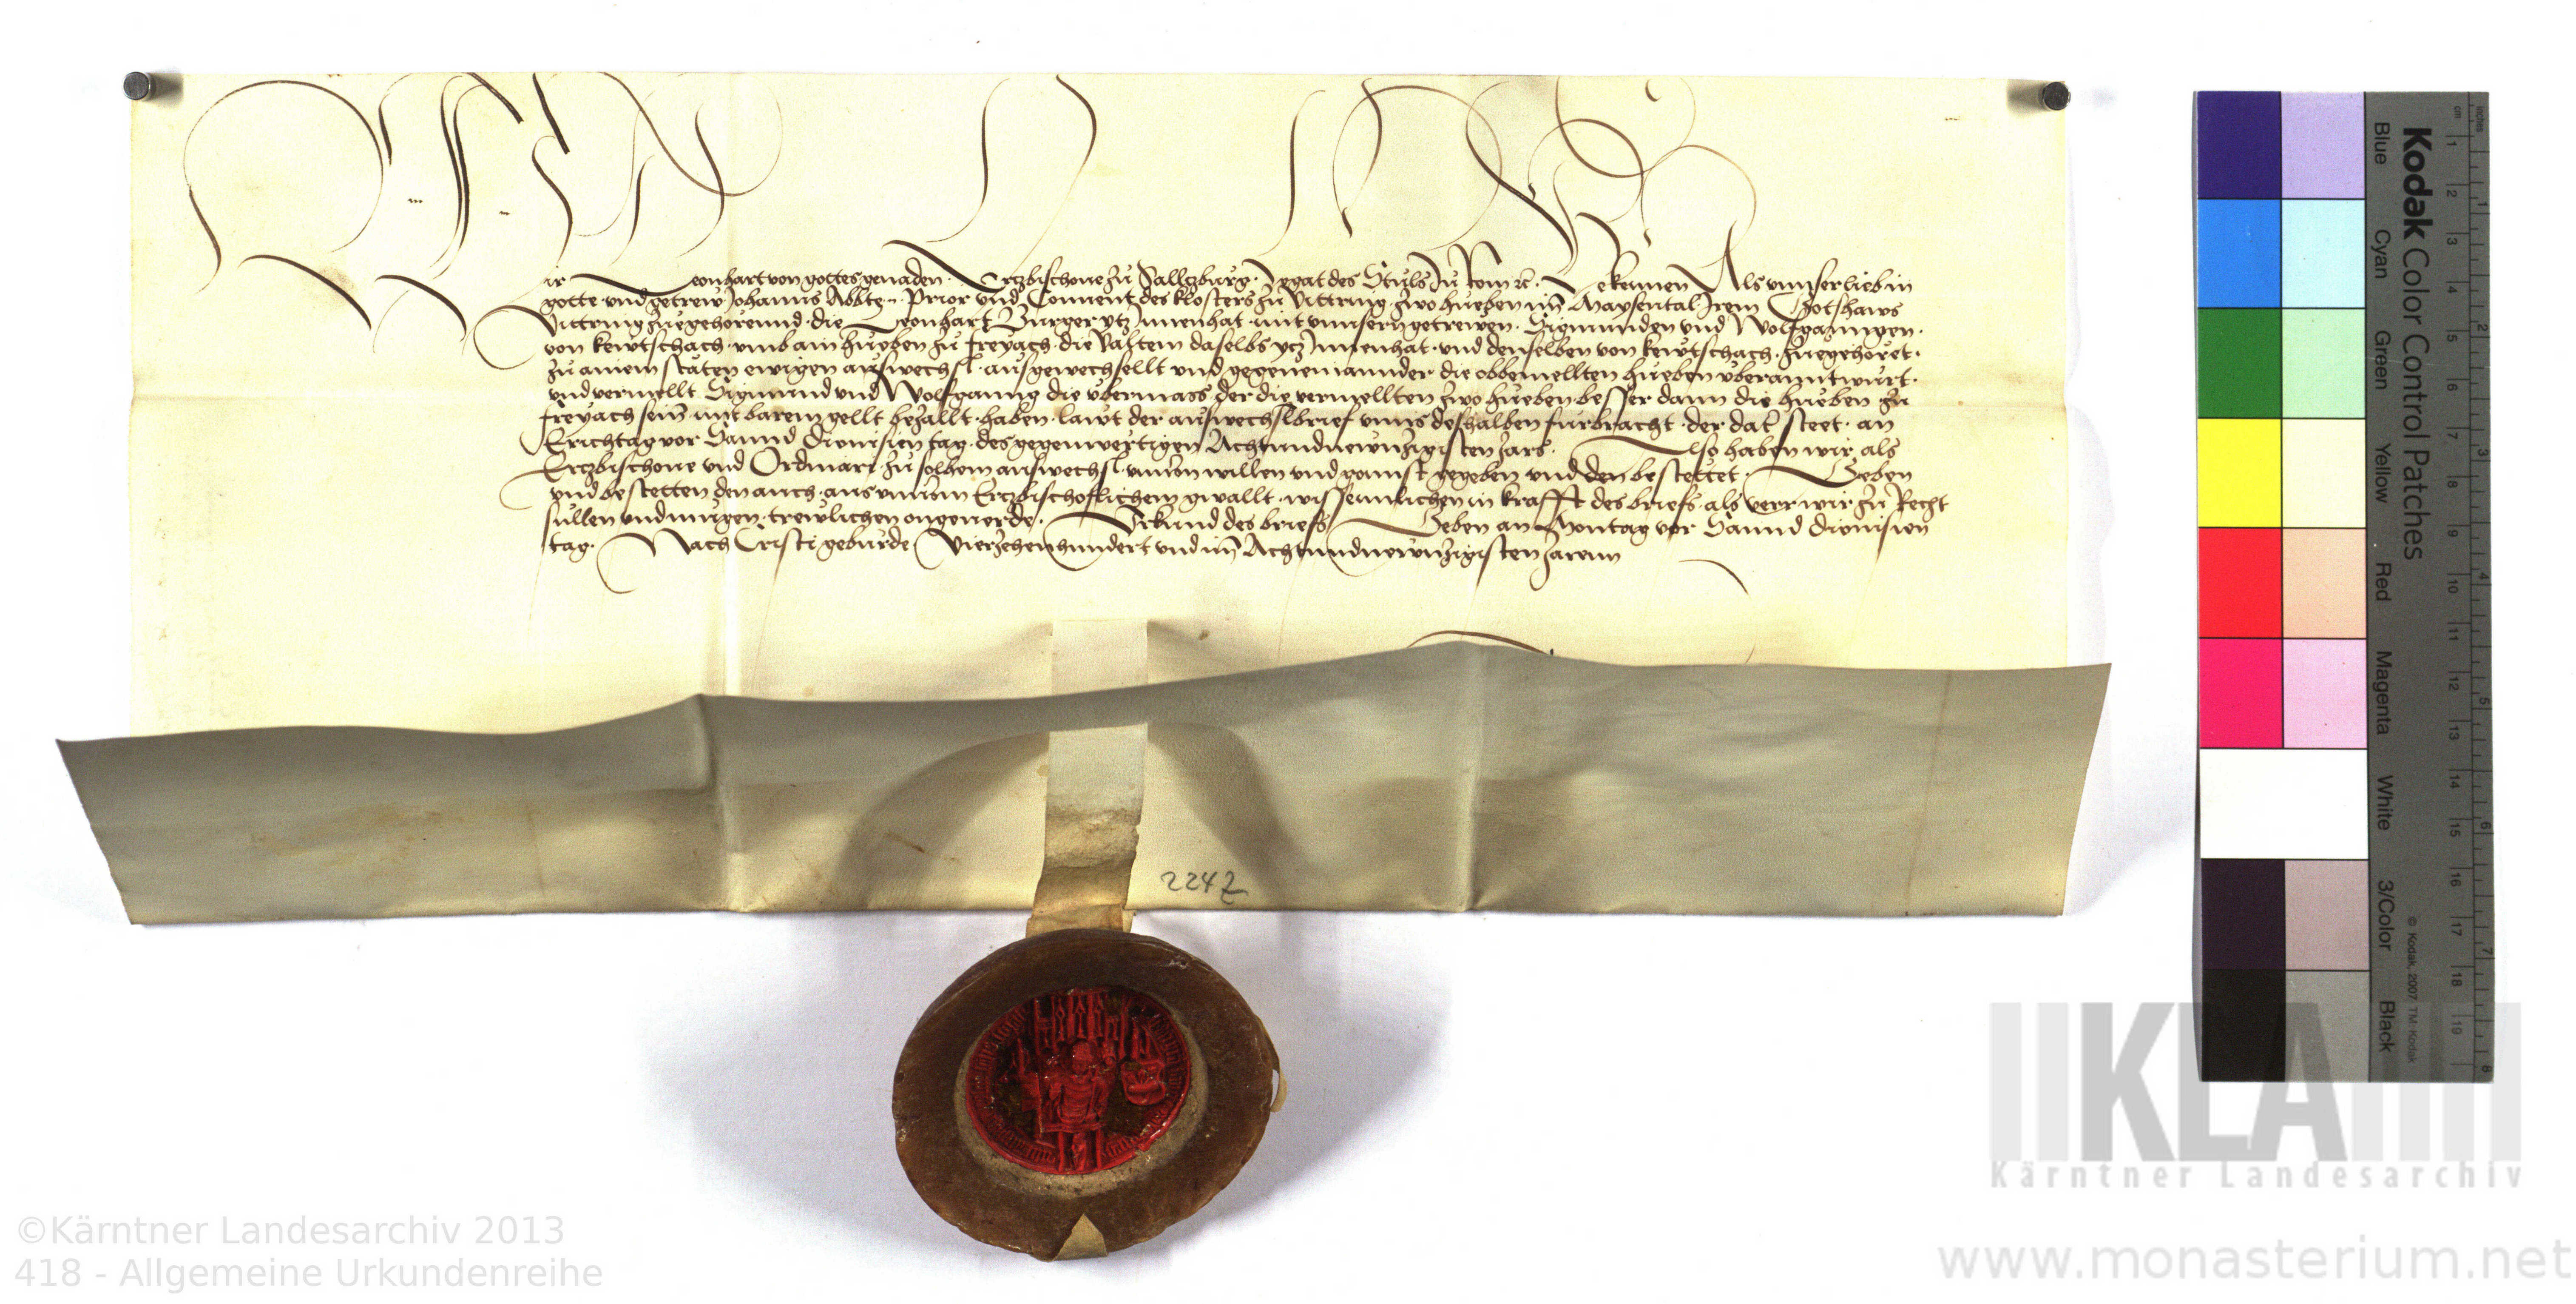 Wir Leonhart von gottes genaden. Ertzbischoue zů Salltzburg. Legat des Stůls zů Rom ꝛc. Bekennen Als vnnser lieb in
gotte vnd getrew Johanns Abbte. Prior vnd Conuent des klosters zů Vittring. zwo hueben im Maysental Irem Gotshaws
Vittring zuegehörennd. die Leonhart Burger ytz Innenhat. mit vnnsern getrewen. Sigmunden vnd Wolfganngen.
von kewtschach. vmb ain hueben zů freyach. die daselbs ytz Innenhat. vnd denselben von kewtschach. zuegehöret.
zů ainem stäten ewigen auswechsl. ausgewechsellt vnd gegeneinannder die obbemellten hueben vberanntwurt.
vnd vermellt Sigmund vnd Wolfganng die vbermass der die vermellten zwo hueben besser dann die hueben zu
freyach sein mit barem gellt bezallt haben. lawt der auswechslbrief vnns deshalben furbracht. der dat steet. an
Erichtag vor Sannd Dionisien tag. des gegenwertigen Achtundnewnzigisten Jars. Also haben wir als
Ertzbischoue vnd Ordinari. zů solhem auswechsl. vnnsern willen vnd gonnst gegeben vnd den bestettet. Geben
vnd bestetten den auch. aus vnnserm Ertzbischoflichem gwallt. wissenntlichen in krafft des briefs. als verr wir zů Recht
sullen vnd mugen. trewlichen ongeuerde. Vrkund des briefs Geben an Montag vor Sannd Dionisien
tag. Nach Cristi geburde Vierzehenhundert vnd im Achtundnewnzigisten Jarenn
2247
Kodak Color Control Patches
Blue Cyan Green Yellow Red Magenta White 3/Color Black
© Kodak, 2007 TM: Kodak
cm 1 2 3 4 5 6 7 8 9 10 11 12 13 14 15 16 17 18 19
inches 1 2 3 4 5 6 7 8
KLA
Kärntner Landesarchiv
©Kärntner Landesarchiv 2013
418 - Allgemeine Urkundenreihe
www.monasterium.net